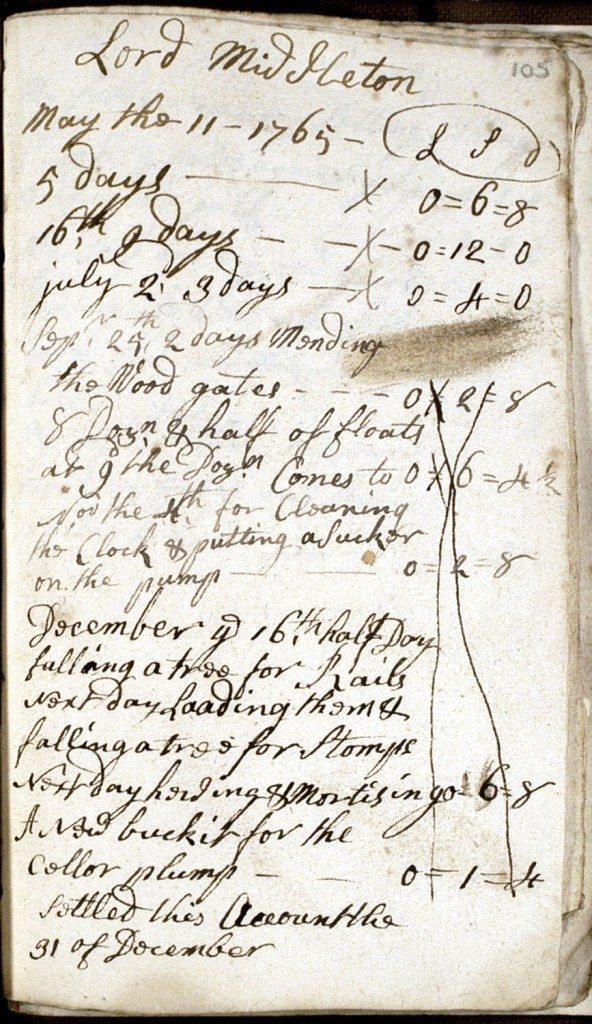 Lord Middleton
105
May the 11 - 1765 - L S d
5 days X 0=6=8
16th 9 days - - X - 0=12-0
july 2 3 days - X 0=4=0
Sepr 25th 2 days Mending
the Wood gates - - - 0=2=8
8 Dozn & half of floats
at 9 the Dozn Comes to 0=6=4½
Nov the 4th for Cleaning
the Clock & putting a Sucker
on the pump 0=2=8
December ye 16th half Day
falling a tree for Rails
Next day Loading them &
falling a tree for Stomps
Next day heiding & Mortising 0=6=8
A New buckit for the
Cellor plump - - 0=1=4
Settled this Account the
31 of December